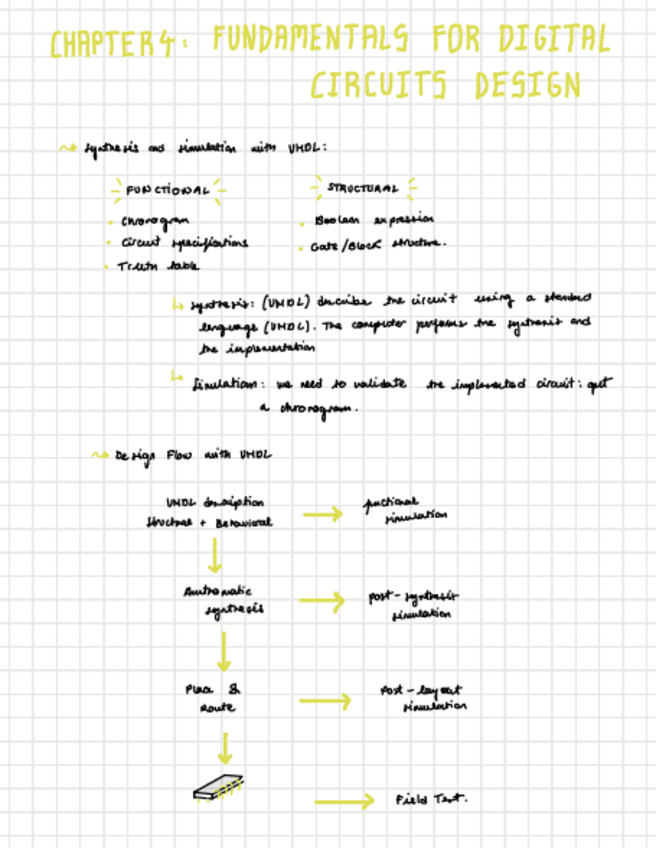 CHAPTER 4: FUNDAMENTALS FOR DIGITAL
CIRCUITS DESIGN
synthesis and simulation with VHDL:
FUNCTIONAL
STRUCTURAL
Chronogram
Circuit specifications
Truth table
Boolean expression
Gate/Block structure.
synthesis: (VHDL) describe the circuit using a standard
language (VHDL). The computer performs the synthesis and
the implementation
Simulation: we need to validate the implemented circuit: get
a chronogram.
Design Flow with VHDL
VHDL description
structural + Behavioral
functional
simulation
Automatic
synthesis
post-synthesis
simulation
Place &
Route
Post-layout
simulation
Field Test.